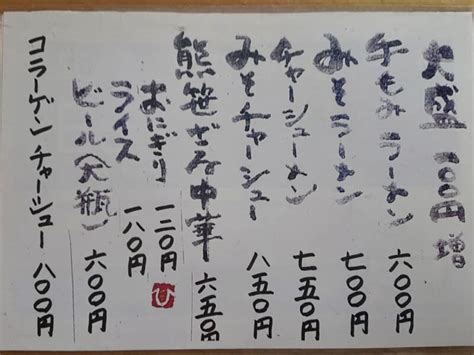 大盛 一〇〇円増
手もみラーメン 六〇〇円
みそラーメン 七〇〇円
チャーシューメン 七五〇円
みそチャーシュー 八五〇円
熊笹ざる中華 六五〇円
おにぎり 一二〇円
ライス 一八〇円
ビール(大瓶) 六〇〇円
コラーゲンチャーシュー 八〇〇円
ひ